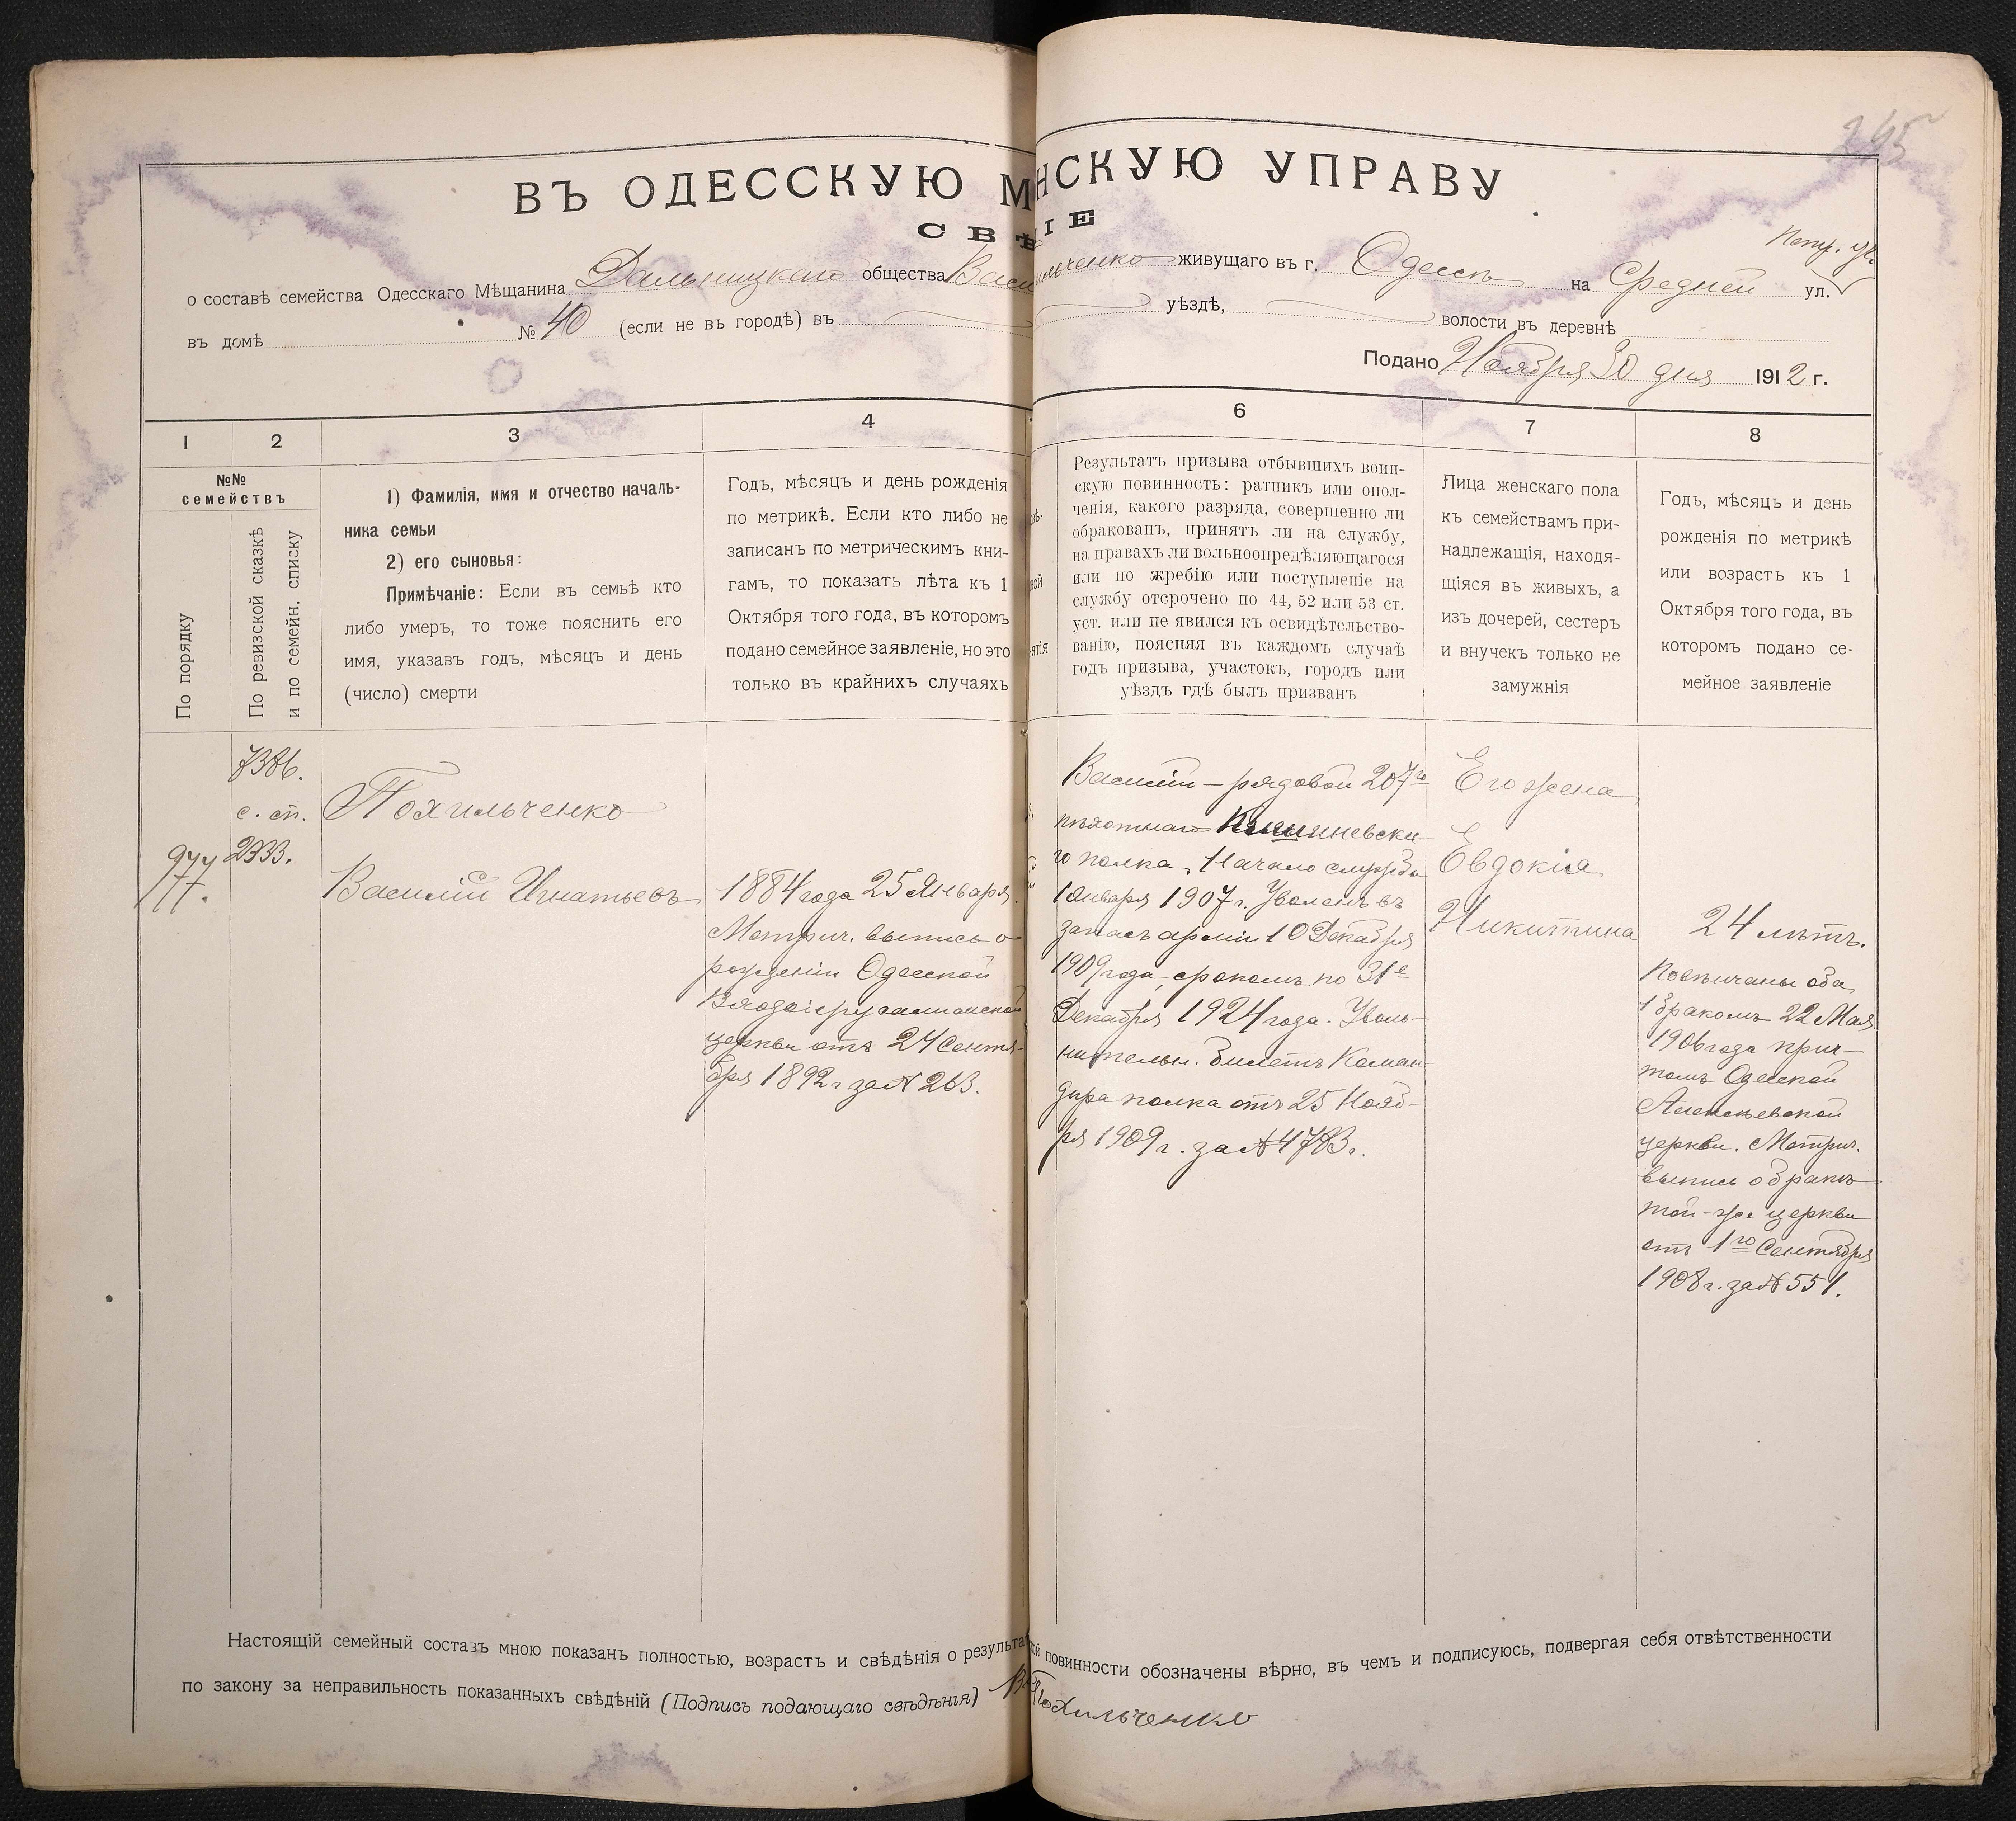 245
ВЪ ОДЕССКУЮ М НСКУЮ УПРАВУ
СВѢ ІЕ
о составѣ семейства Одесскаго Мѣщанина Дальницкаго общества Васи ильченко живущаго въ г. Одессѣ на Средней ул.
въ домѣ № 40 (если не въ городѣ) въ уѣздѣ, волости въ деревнѣ
Подано Ноября 30 дня 1912 г.
1 2 3 4
№№
семействъ
По порядку
По ревизской сказкѣ
и по семейн. списку
1) Фамилія, имя и отчество началь-
ника семьи
2) его сыновья:
Примѣчаніе: Если въ семьѣ кто
либо умеръ, то тоже пояснить его
имя, указавъ годъ, мѣсяцъ и день
(число) смерти
Годъ, мѣсяцъ и день рожденія
по метрикѣ. Если кто либо не
записанъ по метрическимъ кни-
гамъ, то показать лѣта къ 1
Октября того года, въ которомъ
подано семейное заявленіе, но это
только въ крайнихъ случаяхъ
977.
7386.
с. сп.
2333.
Похильченко
Василій Игнатьевъ
1884 года 25 Января.
Метрич. выпись о
рожденіи Одесской
Входоіерусалимской
церкви отъ 24 Сентя-
бря 1892 г за № 263.
6 7 8
Результатъ призыва отбывшихъ воин-
скую повинность: ратникъ или опол-
ченія, какого разряда, совершенно ли
обракованъ, принятъ ли на службу,
на правахъ ли вольноопредѣляющагося
или по жребію или поступленіе на
службу отсрочено по 44, 52 или 53 ст.
уст. или не явился къ освидѣтельство-
ванію, поясняя въ каждомъ случаѣ
годъ призыва, участокъ, городъ или
уѣздъ гдѣ былъ призванъ
Лица женскаго пола
къ семействамъ при-
надлежащія, находя-
щіяся въ живыхъ, а
изъ дочерей, сестеръ
и внучекъ только не
замужнія
Годъ, мѣсяцъ и день
рожденія по метрикѣ
или возрастъ къ 1
Октября того года, въ
которомъ подано се-
мейное заявленіе
Василій – рядовой 207го
пѣхотнаго Кишиневска-
го полка. Начало службы
1 Января 1907 г. Уволенъ въ
запасъ арміи 10 Декабря
1909 года, срокомъ по 31е
Декабря 1924 года. Уволь-
нительн. билетъ Коман-
дира полка отъ 25 Нояб-
ря 1909 г. за № 4783.
Его жена
Евдокія
Никитина
24 лѣтъ.
Повѣнчаны оба
1 бракомъ 22 Мая
1906 года прич-
томъ Одесской
Алексѣевской
церкви. Метрич.
выпись о бракѣ
той-же церкви
отъ 1го Сентября
1908 г. за № 551.
Настоящій семейный составъ мною показанъ полностью, возрастъ и свѣдѣнія о результа ой повинности обозначены вѣрно, въ чемъ и подписуюсь, подвергая себя отвѣтственности
по закону за неправильность показанныхъ свѣдѣній (Подпись подающаго свѣдѣнія) Похильченко